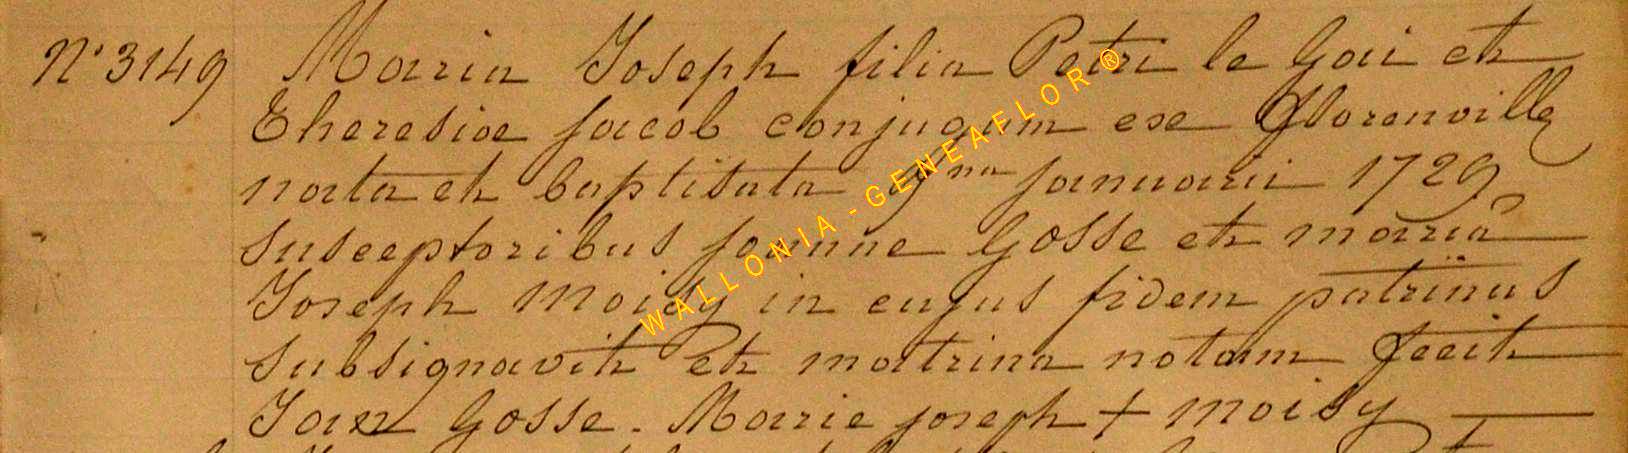 N° 3149 Maria Joseph filia Petri le Gai et
Theresiae Jacob conjugum ex Florenville
nata et baptisata 9na januarii 1729
susceptoribus joanne Gosse et maria
Joseph Moisy in cujus fidem patrinus
subsignavit et matrina notam fecit
Jan Gosse. Marie joseph + Moisy
WALLONIA - GENEAFLOR ®